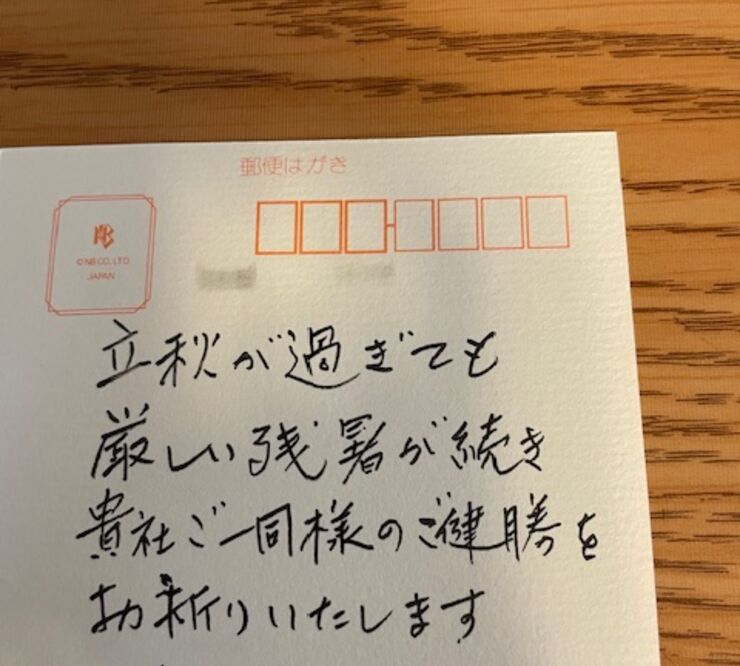 郵便はがき
NB
©NB CO., LTD.
JAPAN
立秋が過ぎても
厳しい残暑が続き
貴社ご一同様のご健勝を
お祈りいたします